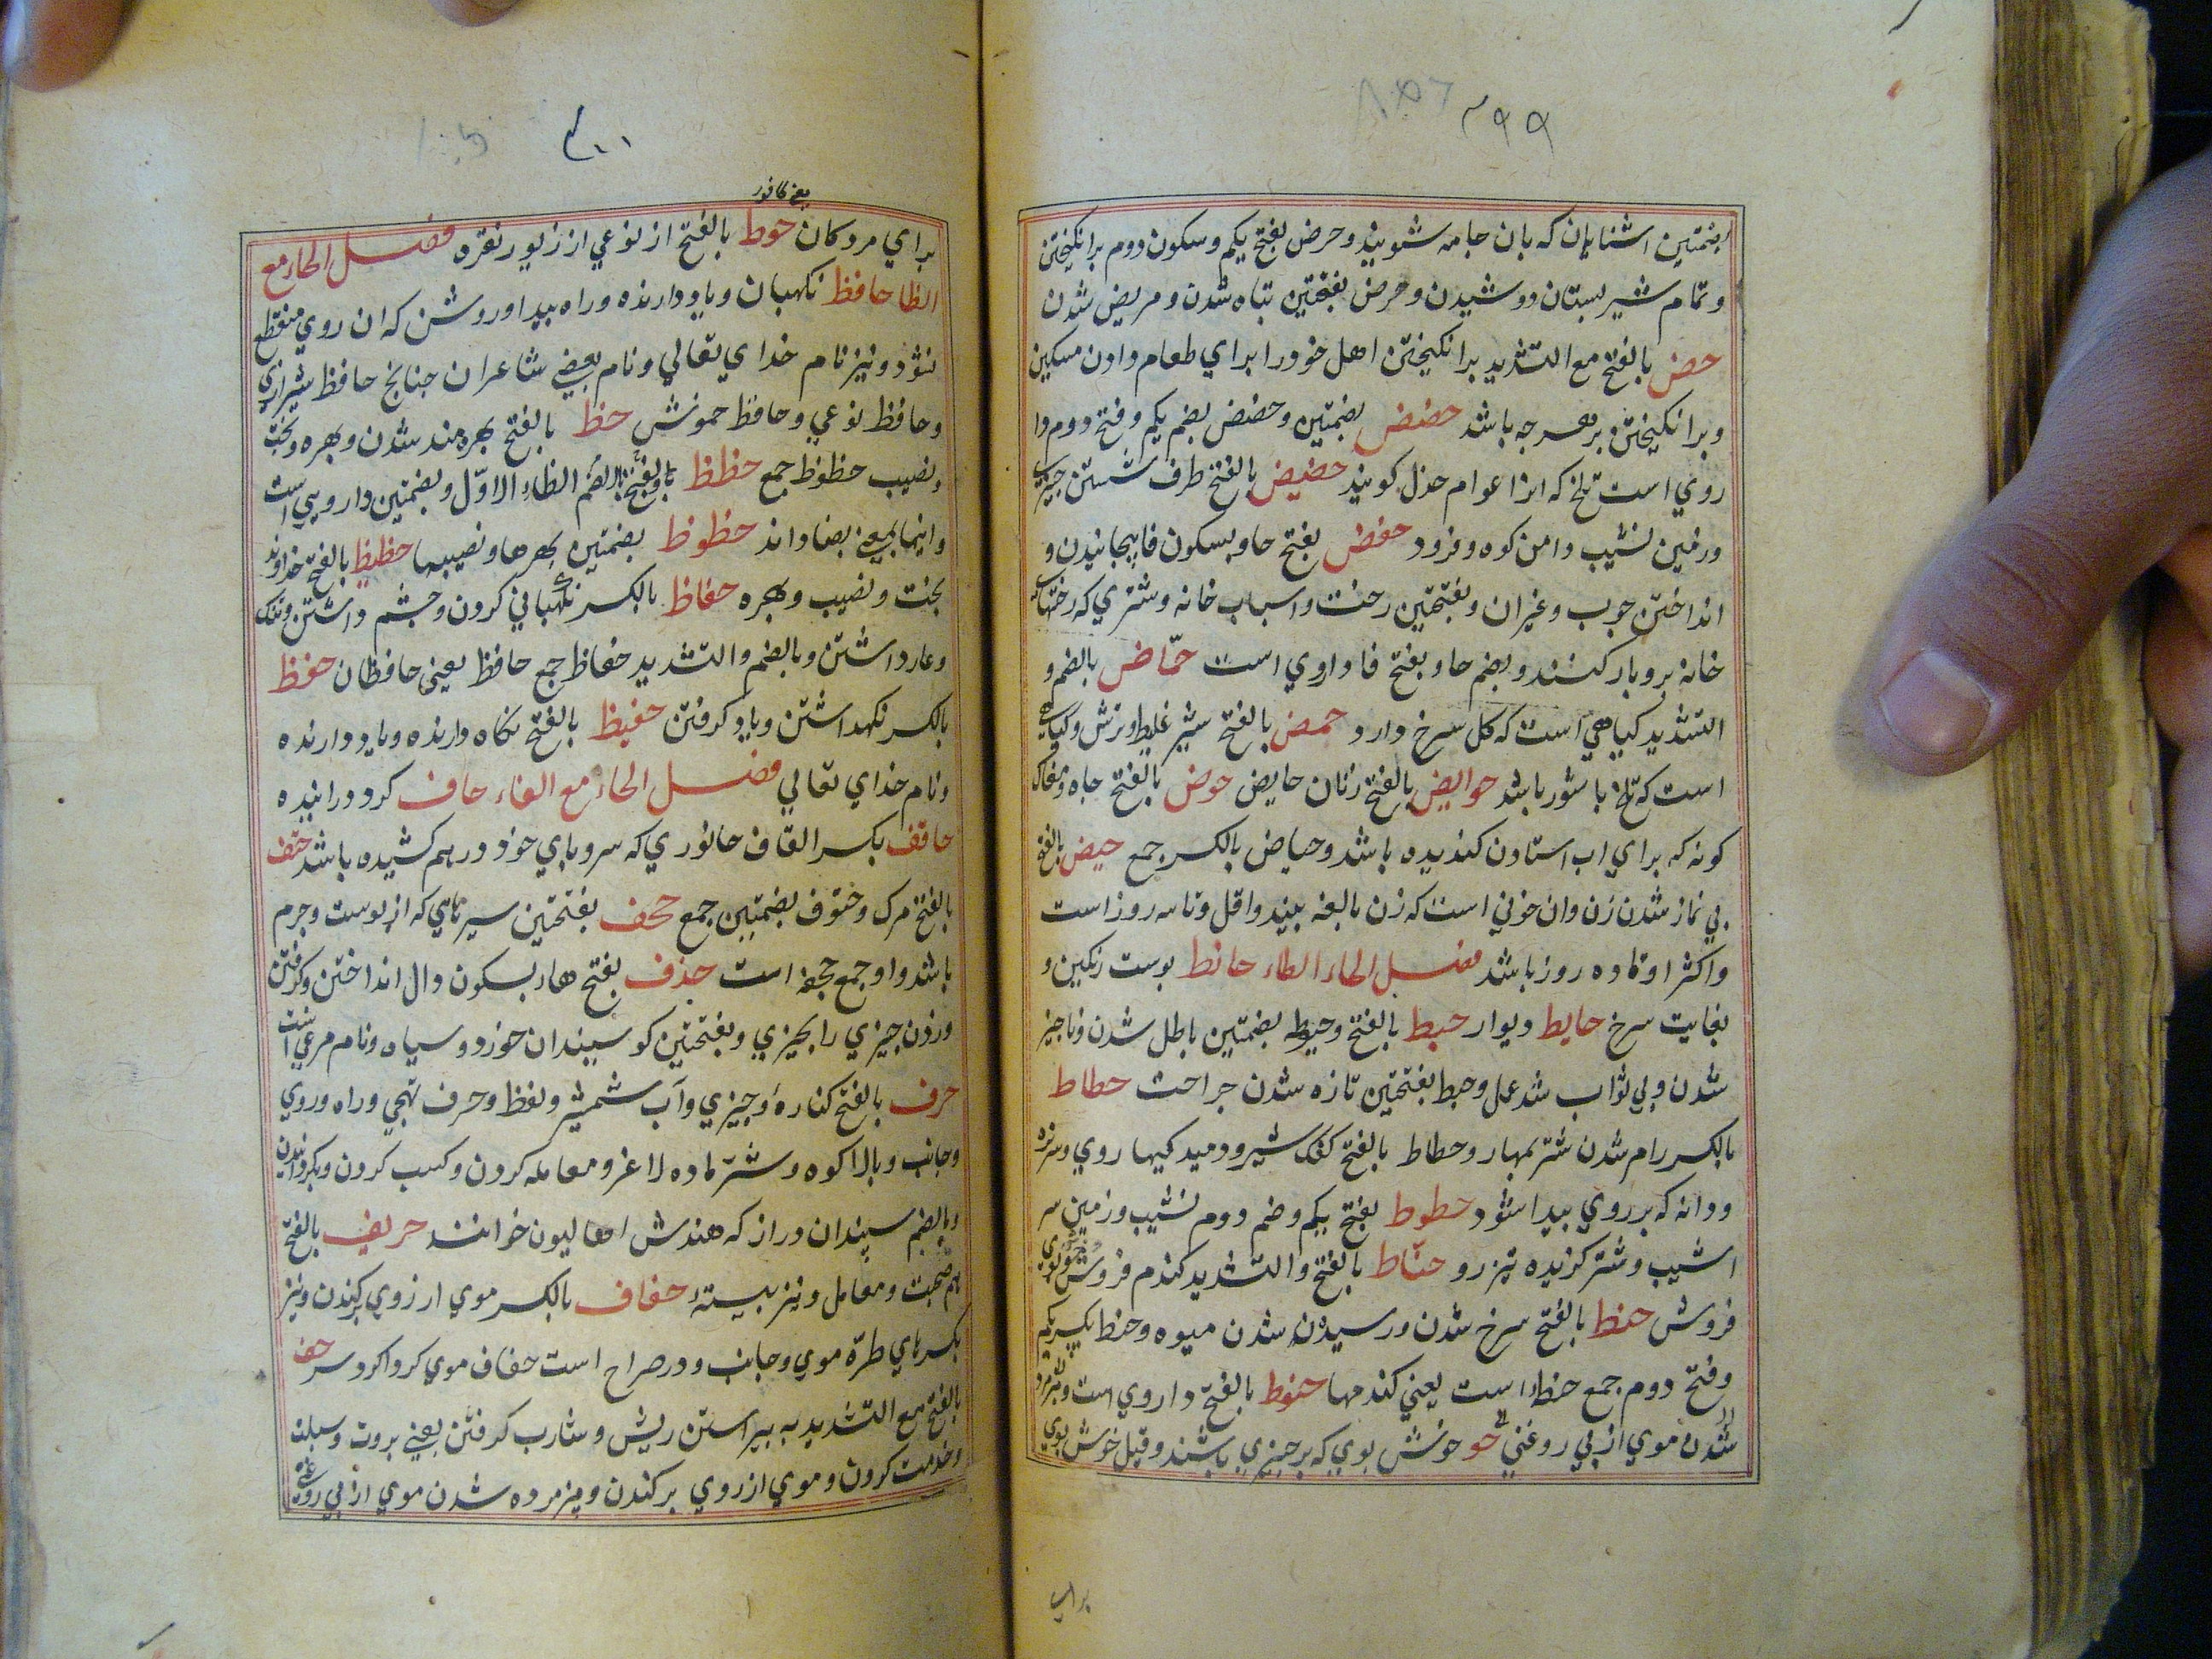 ۳۹۹
بضمتین اشنایان که بان جامه شویند وحرض بفتح یکم وسکون دوم برانکیختن
وتمام شیر بستان دوشیدن وحرض بفتحتین تباه شدن ومریض شدن
حض بالفتح مع التشدید برانکیختن اهل خود را برای طعام دادن مسکین
وبرانکیختن بر هرچه باشد حضض بضمتین وحضض بضم یکم وفتح دوم دا
روی است تلخ که انرا عوام حذل کویند حضیض بالفتح طرف شستن چیزی
وزمین نشیب دامن کوه وفرود حفض بفتح حا وبسکون فا پیچانیدن و
انداختن چوب وغیران وبفتحتین رخت واسباب خانه وشتری که رختهای
خانه برو بار کنند وبضم حا وبفتح فا داروی است حمّاض بالضم و
التشدید کیاهی است که کل سرخ دارد حمض بالفتح شیر غلیظ وترش وکیاهی
است که تلخ یا شور باشد حوایض بالفتح زنان حایض حوض بالفتح چاه ومغاک
کونه که برای اب استادن کندیده باشد وحیاض بالکسر جمع حیض بالفتح
بی نماز شدن زن وان خونی است که زن بالغه بیند واقل وتا سه روز است
واکثر او تا ده روز باشد فصل الحاء الطاء حانط پوست رنکین و
بغایت سرخ حایط دیوار حبط بالفتح وحبوط بضمتین باطل شدن وناچیز
شدن وبی ثواب شدعمل وحبط بفتحتین تازه شدن جراحت حطاط
بالکسر رام شدن شتر بمهار وحطاط بالفتح کفک شیر ودمیدکیها روی وسرزه
ودانه که بر روی پیدا شود حطوط بفتح یکم وضم دوم نشیب وزمین سر
اشیب وشتر کزیده تیز رو حنّاط بالفتح والتشدید کندم فروش وحنوط بوی
فروش حنط بالفتح سرخ شدن ورسیدن شدن میوه وحنط بکسر یکم
وفتح دوم جمع حنطه است یعنی کندمها حنوط بالفتح داروی است وپژمرده
شدن موی از بی روغنی حو خوش بوی که بر چیزی باشند وقیل خوش بوی
برای
۴۰۰
یعنی کافور
برای مردکان حوط بالفتح از نوعی از زیور نقره فصل الحاء مع
الظا حافظ نکهبان ویاددارنده وراه پیدا وروشن که ان روی منقطع
نشود ونیز نام خدای تعالی ونام بعضی شاعران چنانچ حافظ شیرازی
وحافظ نوعی وحافظ خموش حظ بالفتح بهره مند شدن وبهره وبخت
ونصیب حظوظ جمع حظظ بالفتح بالضم الظاء الاوّل وبضمتین دارویی است
واینها بمعنی بضاد اند حظوظ بضمتین بهرها ونصیبها حظیظ بالفتح خداوند
بخت ونصیب وبهره حفاظ بالکسر نکهبانی کردن وچشم داشتن وننک
وعار داشتن وبالضم والتشدید حفاظ جمع حافظ یعنی حافظان حفظ
بالکسر نکهداشتن ویاد کرفتن حفیظ بالفتح نکاه دارنده ویاددارنده
ونام خدای تعالی فصل الحاء مع الفاء حاف کرد دراینده
حاقف بکسر القاف جانوری که سر وپای خود درهم کشیده باشد حتف
بالفتح مرک وحتوف بضمتین جمع حجف بفتحتین سپرهای که از پوست وچرم
باشد واو جمع حجفه است حذف بفتح هار بسکون دال انداختن وکرفتن
وزدن چیزی را بچیزی وبفتحتین کوسپندان خورد وسیاه ونام مرغی است
حرف بالفتح کناره وچیزی وآب شمشیر ولفظ وحرف تهجی وراه وروی
وجانب وبالا کوه وشتر ماده لاغر ومعامله کردن وکسب کردن وبکردانیدن
وبالضم سپندان دراز که هندش اهالیون خوانند حریف بالفتح
هم صحبت ومعامل ونیز بیستهٔ حفاف بالکسر موی از روی برکندن ونیز
بکسرهای طرّه موی وجانب ودر صراح است حفاف موی کرداکرد سر حف
بالفتح مع التشدید به پیراستن ریش وشارب کرفتن یعنی بروت وسبلت
وخدمت کردن وموی از روی برکندن وپژمرده شدن موی از بی روغنی